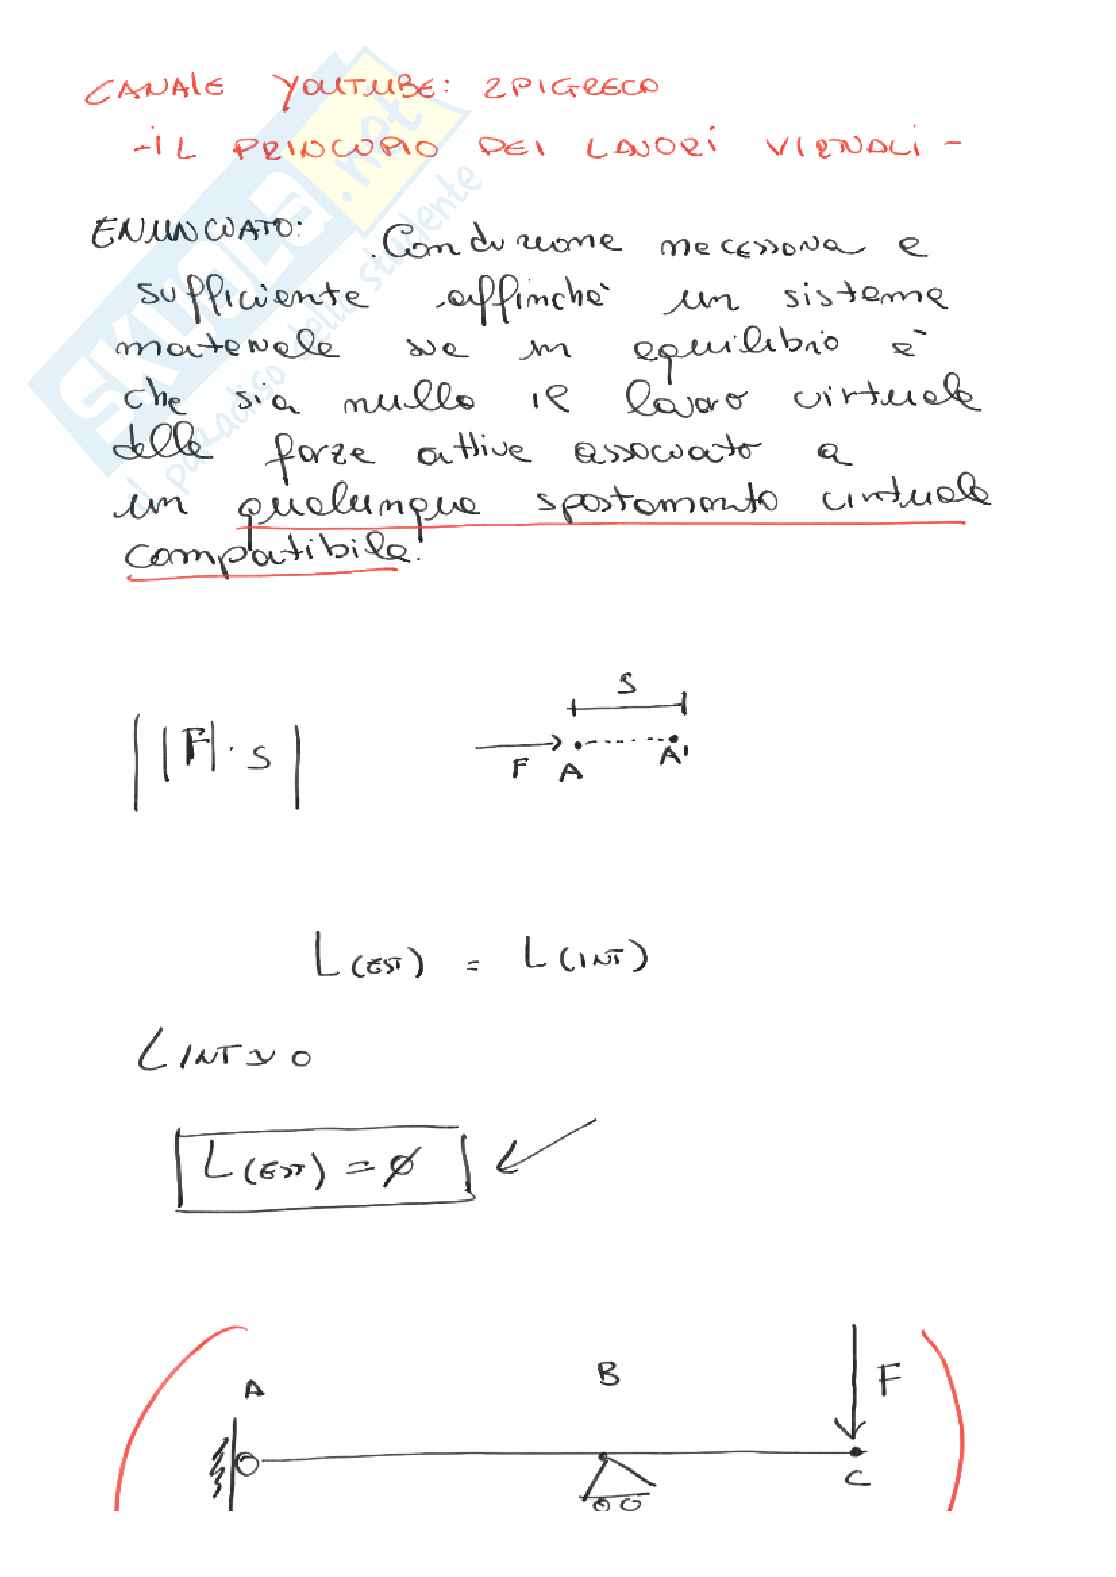 CANALE YOUTUBE: 2PIGRECO
- IL PRINCIPIO DEI LAVORI VIRTUALI -
ENUNCIATO: Condizione necessaria e
sufficiente affinchè un sistema
materiale sia in equilibrio è
che sia nullo il lavoro virtuale
delle forze attive associato a
un qualunque spostamento virtuale
compatibile.
S
| |F| · S |
F A A'
L(EST) = L(INT)
LINT > 0
L(EST) = ∅
A B F
C
SKUOLA.net
il paradiso dello studente